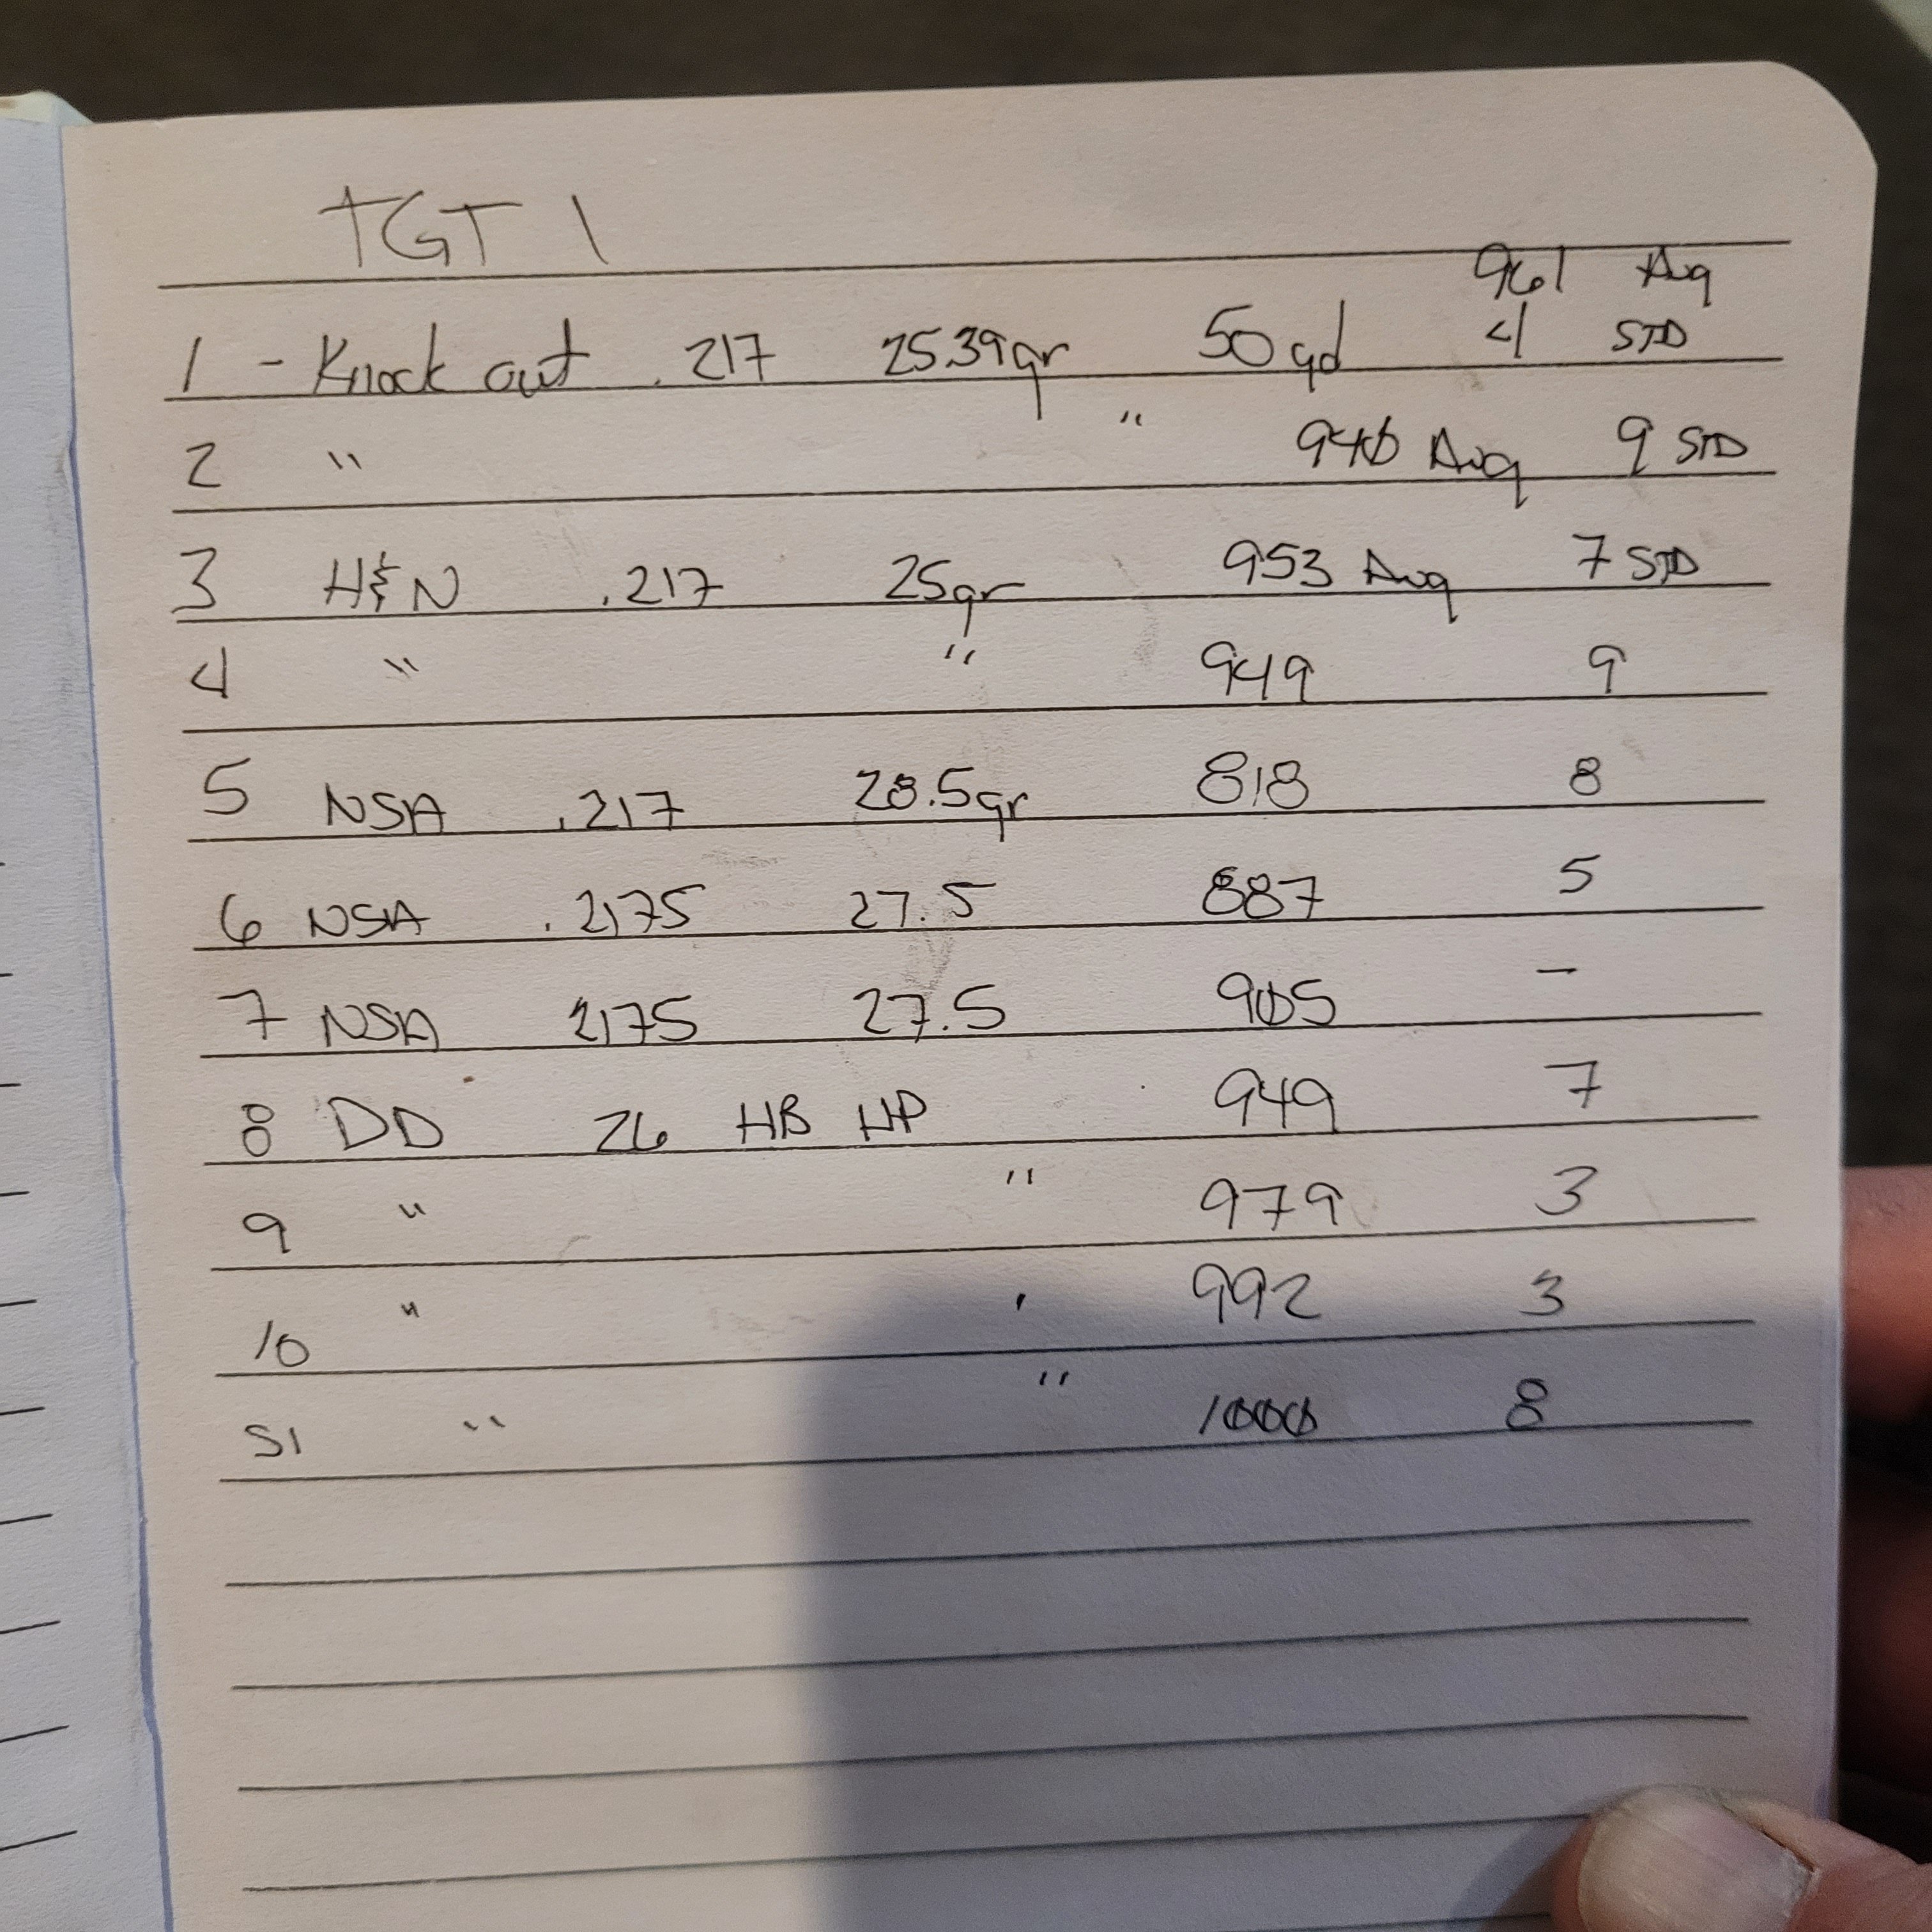 TGT 1
961 Avg
1 - Knock out .217 25.39gr 50yd 4 STD
2 " " 940 Avg 9 STD
3 H&N .217 25gr 953 Avg 7 STD
4 " " 949 9
5 NSA .217 28.5gr 818 8
6 NSA .2175 27.5 887 5
7 NSA 2175 27.5 905 -
8 DD 26 HB HP 949 7
9 " " 979 3
10 " ' 992 3
S1 " " 1000 8